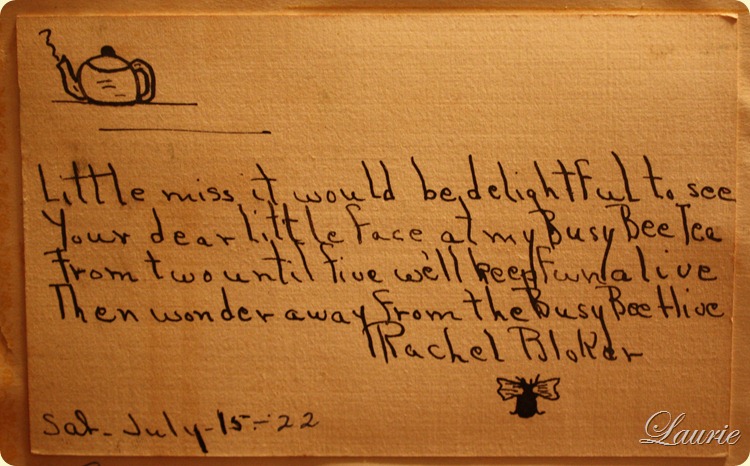 Little miss it would be delightful to see
Your dear little face at my Busy Bee Tea
From two until five we'll keep fun alive
Then wonder away from the Busy Bee Hive
Rachel Bloker
Sat- July-15-22
Laurie